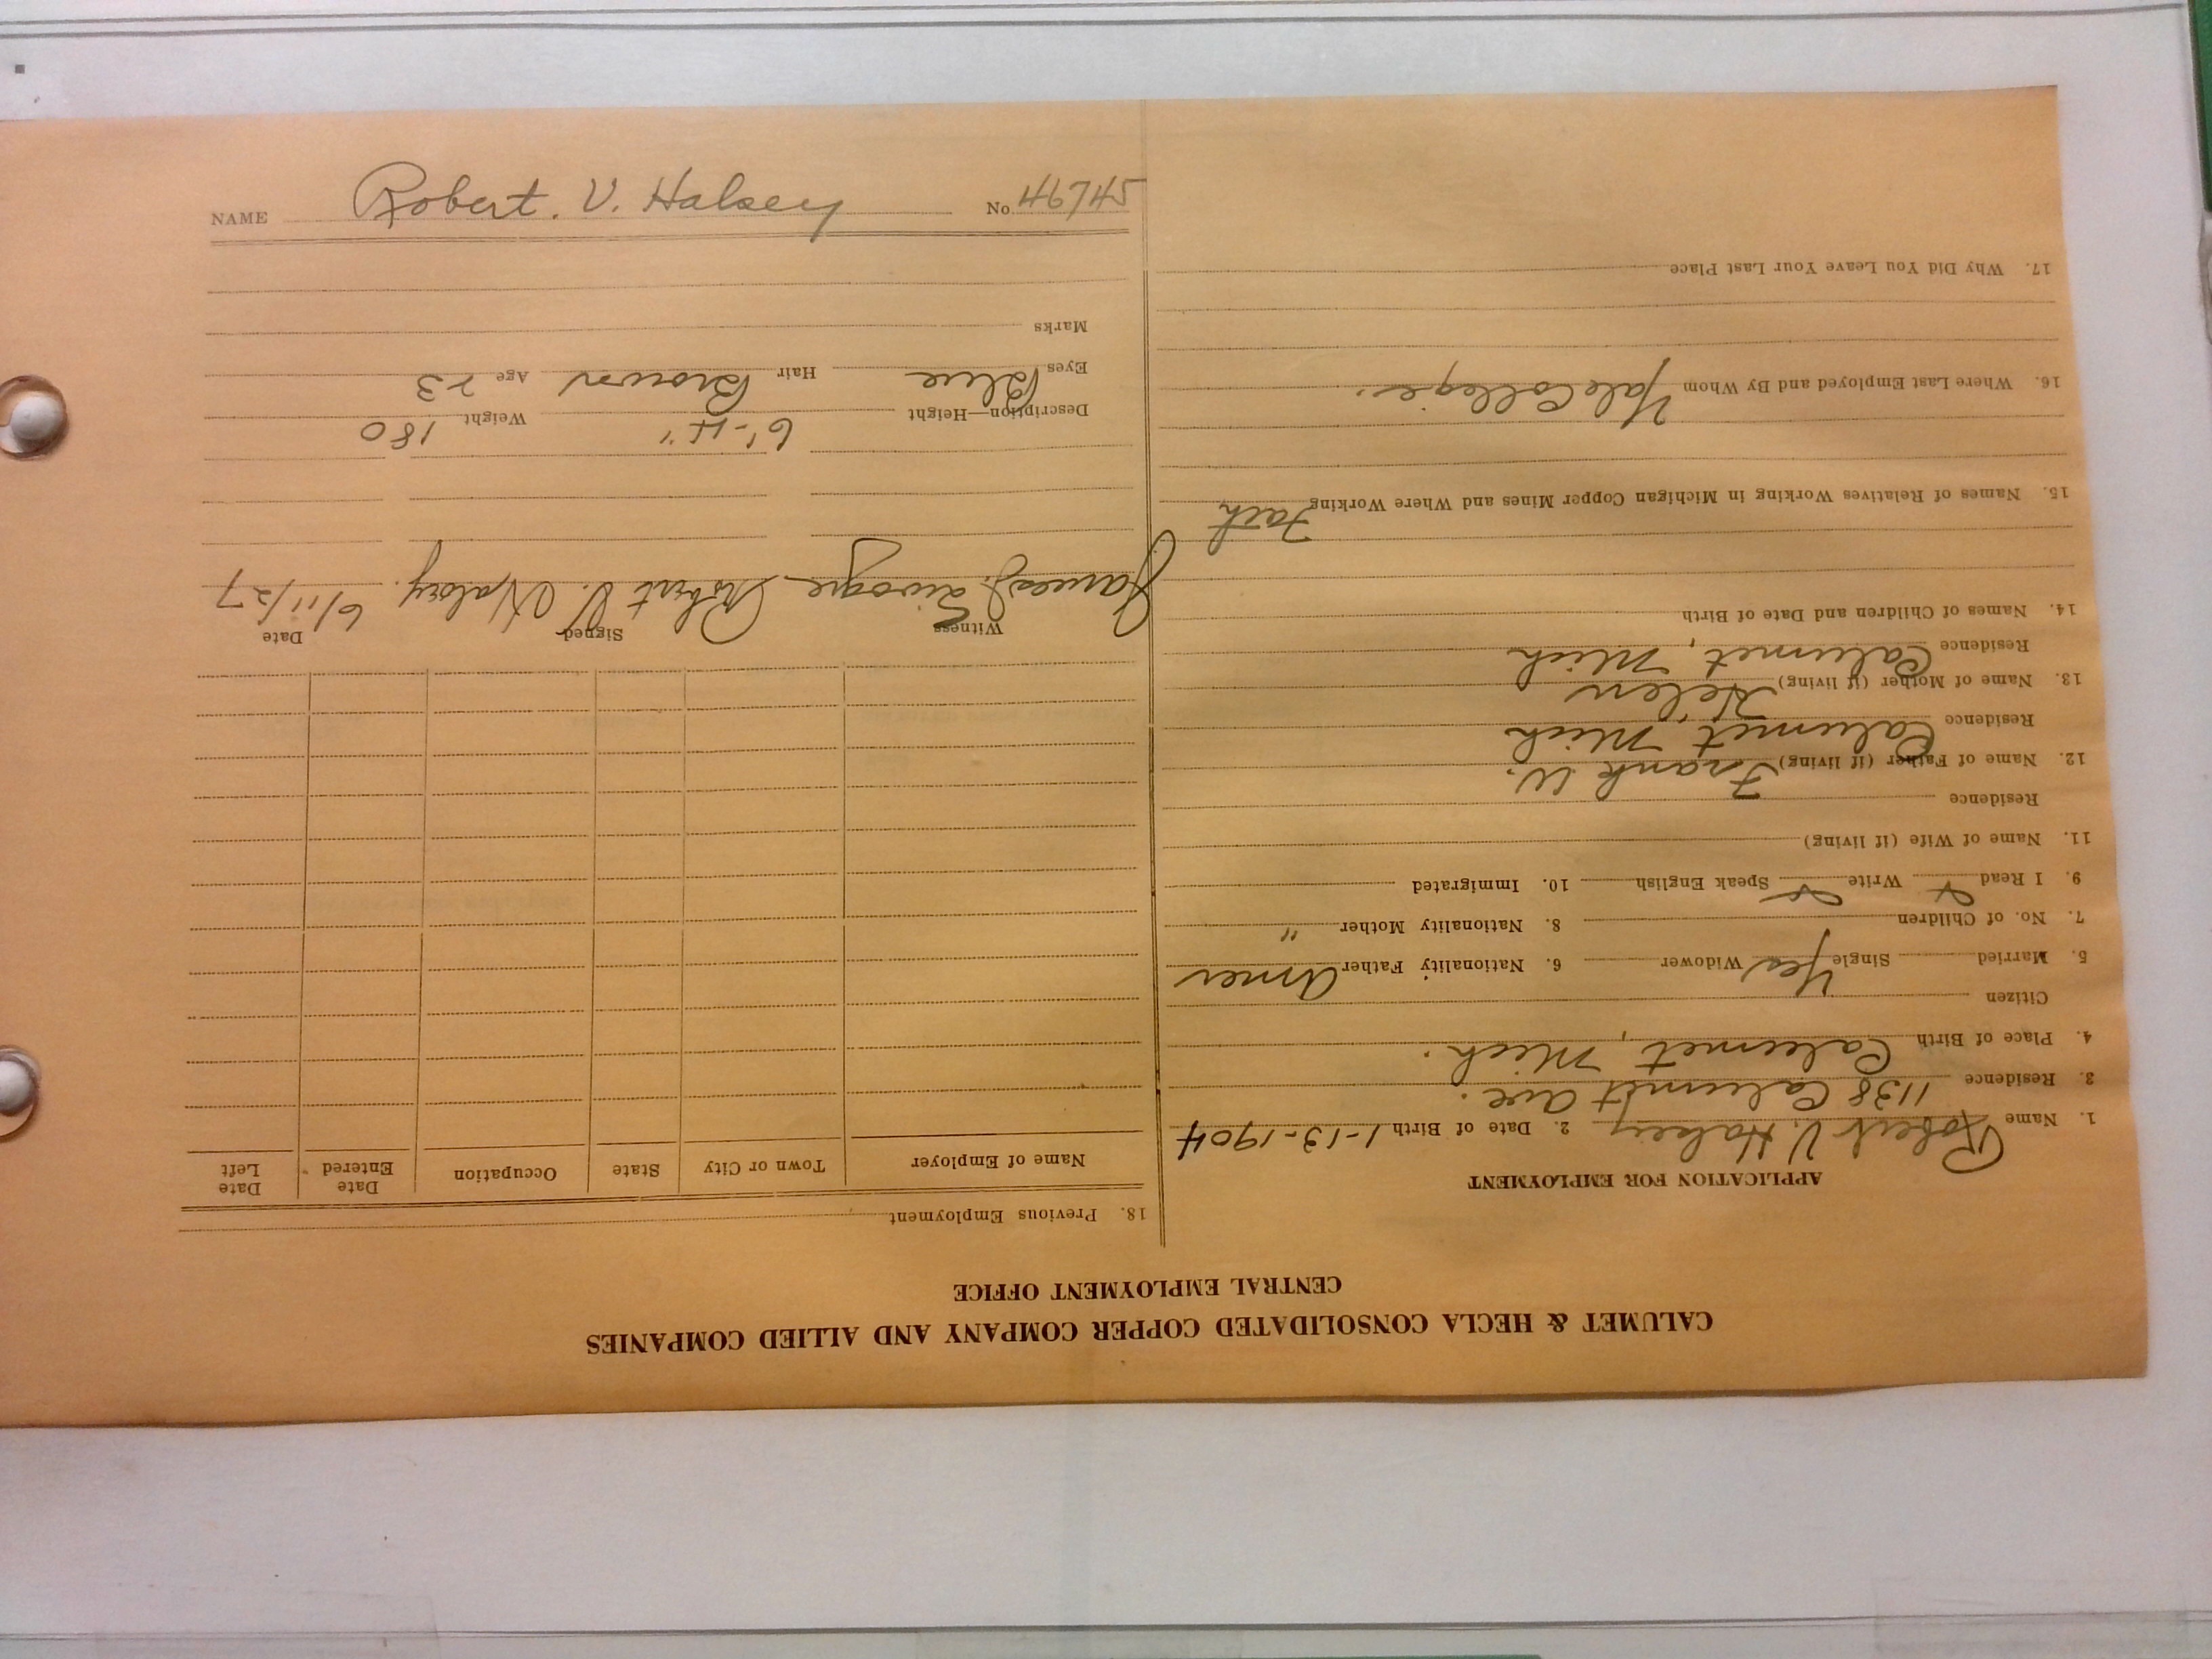 NAME Robert. V. Halsey No 46745
CALUMET & HECLA CONSOLIDATED COPPER COMPANY AND ALLIED COMPANIES
CENTRAL EMPLOYMENT OFFICE
APPLICATION FOR EMPLOYMENT
1. Name Robert V. Halsey 2. Date of Birth 1-13-1904
3. Residence 1138 Calumet Ave.
4. Place of Birth Calumet, Mich.
Citizen
5. Married Single Yes Widower 6. Nationality Father Amer
7. No. of Children 8. Nationality Mother "
9. I Read Write Speak English 10. Immigrated
11. Name of Wife (if living)
Residence
12. Name of Father (if living) Frank W.
Residence Calumet Mich
13. Name of Mother (if living) Helen
Residence Calumet, Mich
14. Names of Children and Date of Birth
15. Names of Relatives Working in Michigan Copper Mines and Where Working Fath
16. Where Last Employed and By Whom Yale College.
17. Why Did You Leave Your Last Place
18. Previous Employment
Name of Employer Town or City State Occupation Date Entered Date Left
Witness Signed Date
James J. Robert V. Halsey. 6/11/27
Description—Height 6'-4" Weight 180
Eyes Blue Hair Brown Age 23
Marks